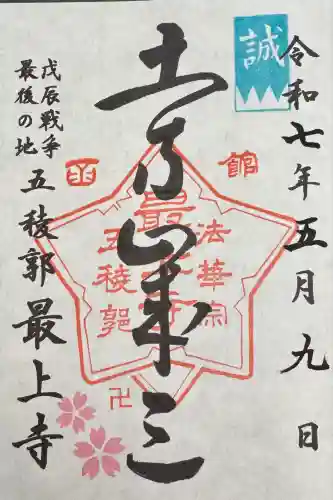 誠
令和七年五月九日
土方歳三
戊辰戦争
最後の地
五稜郭 最上寺
函館
最上寺
法華宗
五稜郭
卍